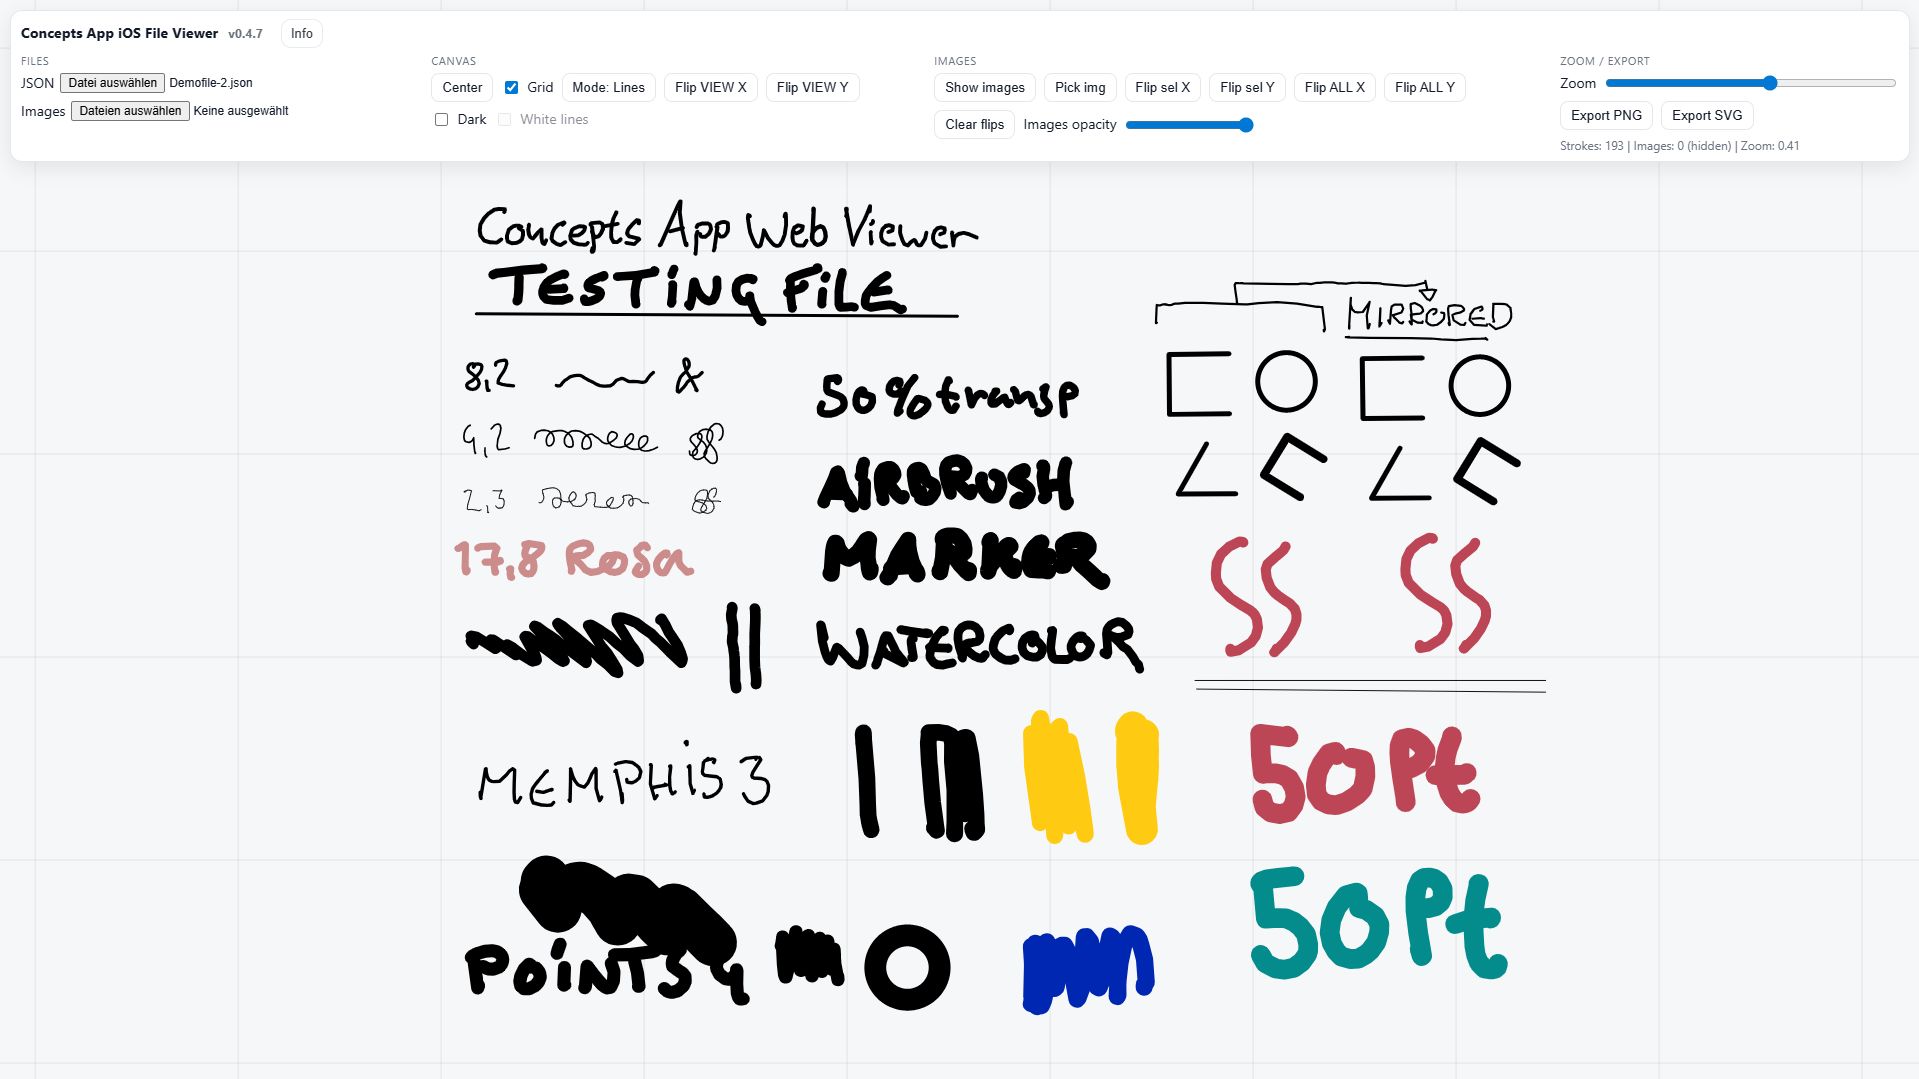 Concepts App iOS File Viewer v0.4.7 Info
FILES
JSON Datei auswählen Demofile-2.json
Images Dateien auswählen Keine ausgewählt
CANVAS
Center Grid Mode: Lines Flip VIEW X Flip VIEW Y
Dark White lines
IMAGES
Show images Pick img Flip sel X Flip sel Y Flip ALL X Flip ALL Y
Clear flips Images opacity
ZOOM / EXPORT
Zoom
Export PNG Export SVG
Strokes: 193 | Images: 0 (hidden) | Zoom: 0.41
Concepts App Web Viewer
TESTING FILE
8,2 &
4,2
2,3
17,8 Rosa
MEMPHIS 3
POINTS 4
50% transp
AIRBRUSH
MARKER
WATERCOLOR
MIRRORED
50Pt
50Pt